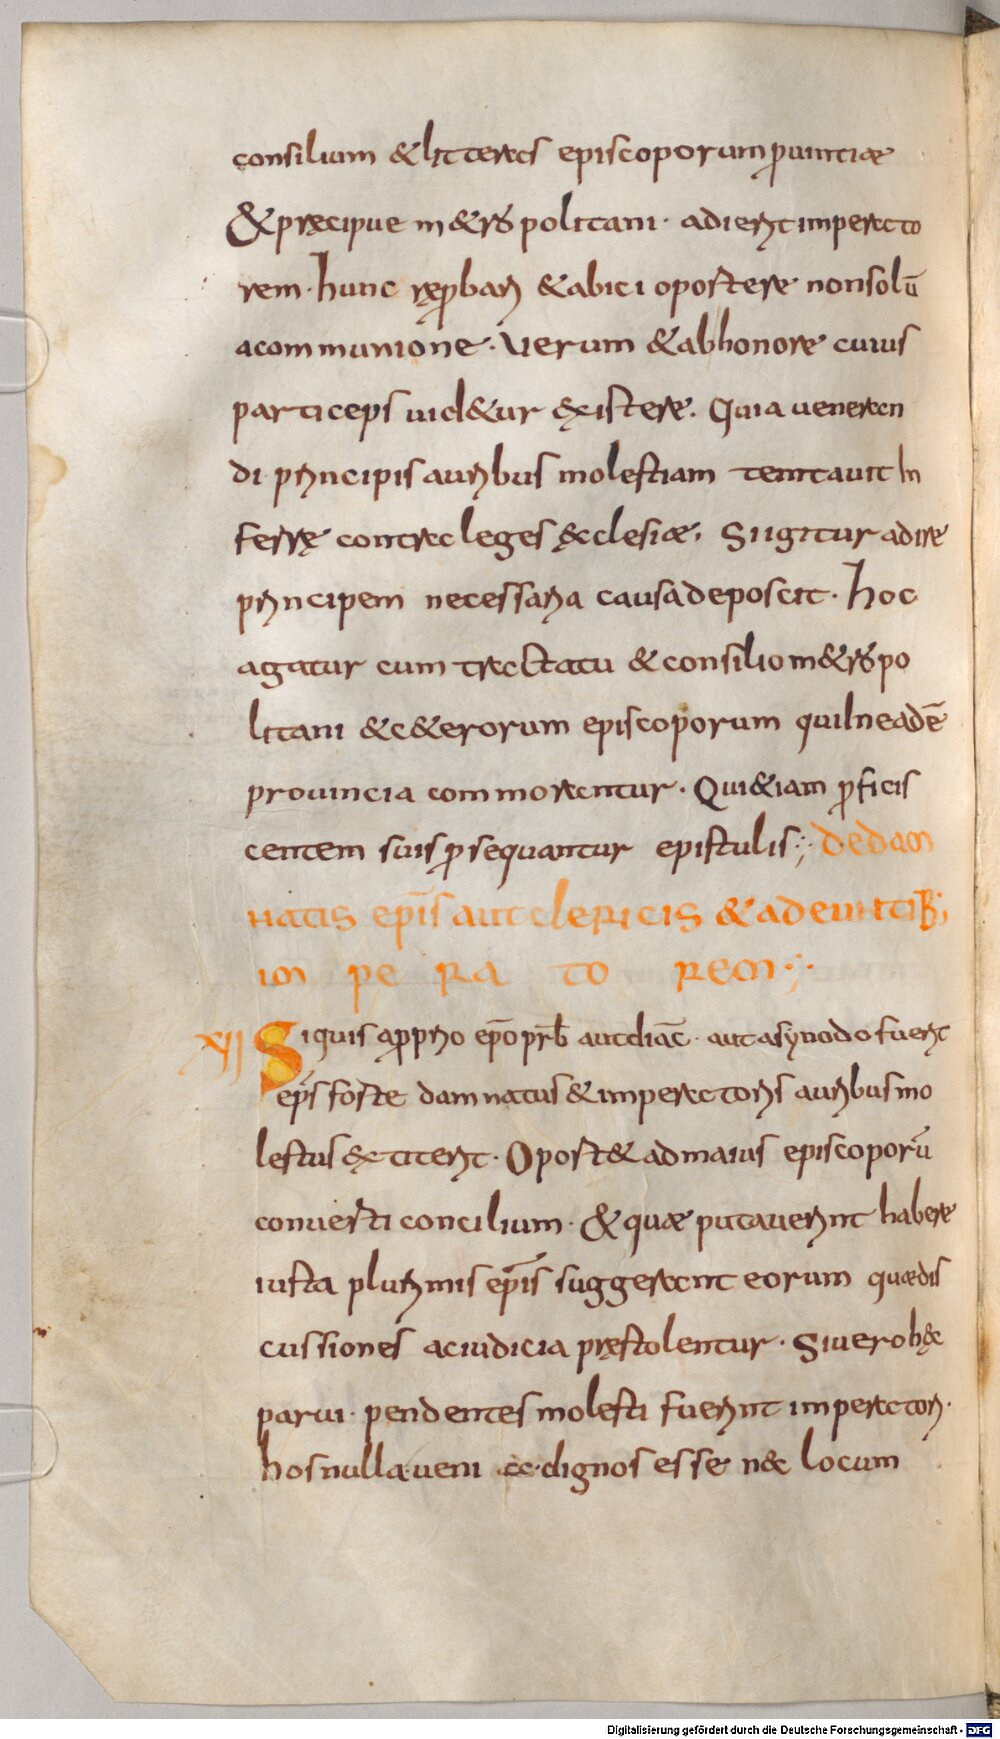 consilium &litteras episcoporum ꝓuintiae
&pręcipue m&ropolitani· adierit imperato
rem· hunc reꝓbari &abici oportere nonsolū
acommunione· Uerum &abhonore cuius
particeps uid&ur existere. Quia ueneran
di principis auribus molestiam temtauit In
ferrę contra leges ęcclesiae, Siigitur adire
principem necessaria causadeposcit· hoc
agatur cum tractatu &consilio m&ropo
litani &c&erorum episcoporum quiIneadē
prouincia commorantur· Qui&iam ꝓficis
centem suis ꝓsequantur epistulis; dedam
natis ep̄is aut clericis &adeuntib;
im pe ra to rem;
XII Siquis aproprio ep̄o prb̄ autdiac̄· autasynodo fuerit
ep̄s forte damnatus &imperatoris auribus mo
lestus extiterit· Oport& admaius episcoporū
conuerti concilium· & quae putauerint habere
iusta plurimis ep̄is suggerant eorum quaedis
cussiones aciudicia pręstolentur· Siuero hęc
parui·pendentes molesti fuerint imperatori·
hosnulla ueni a dignos esse n&c locum
Digitalisierung gefördert durch die Deutsche Forschungsgemeinschaft - DFG